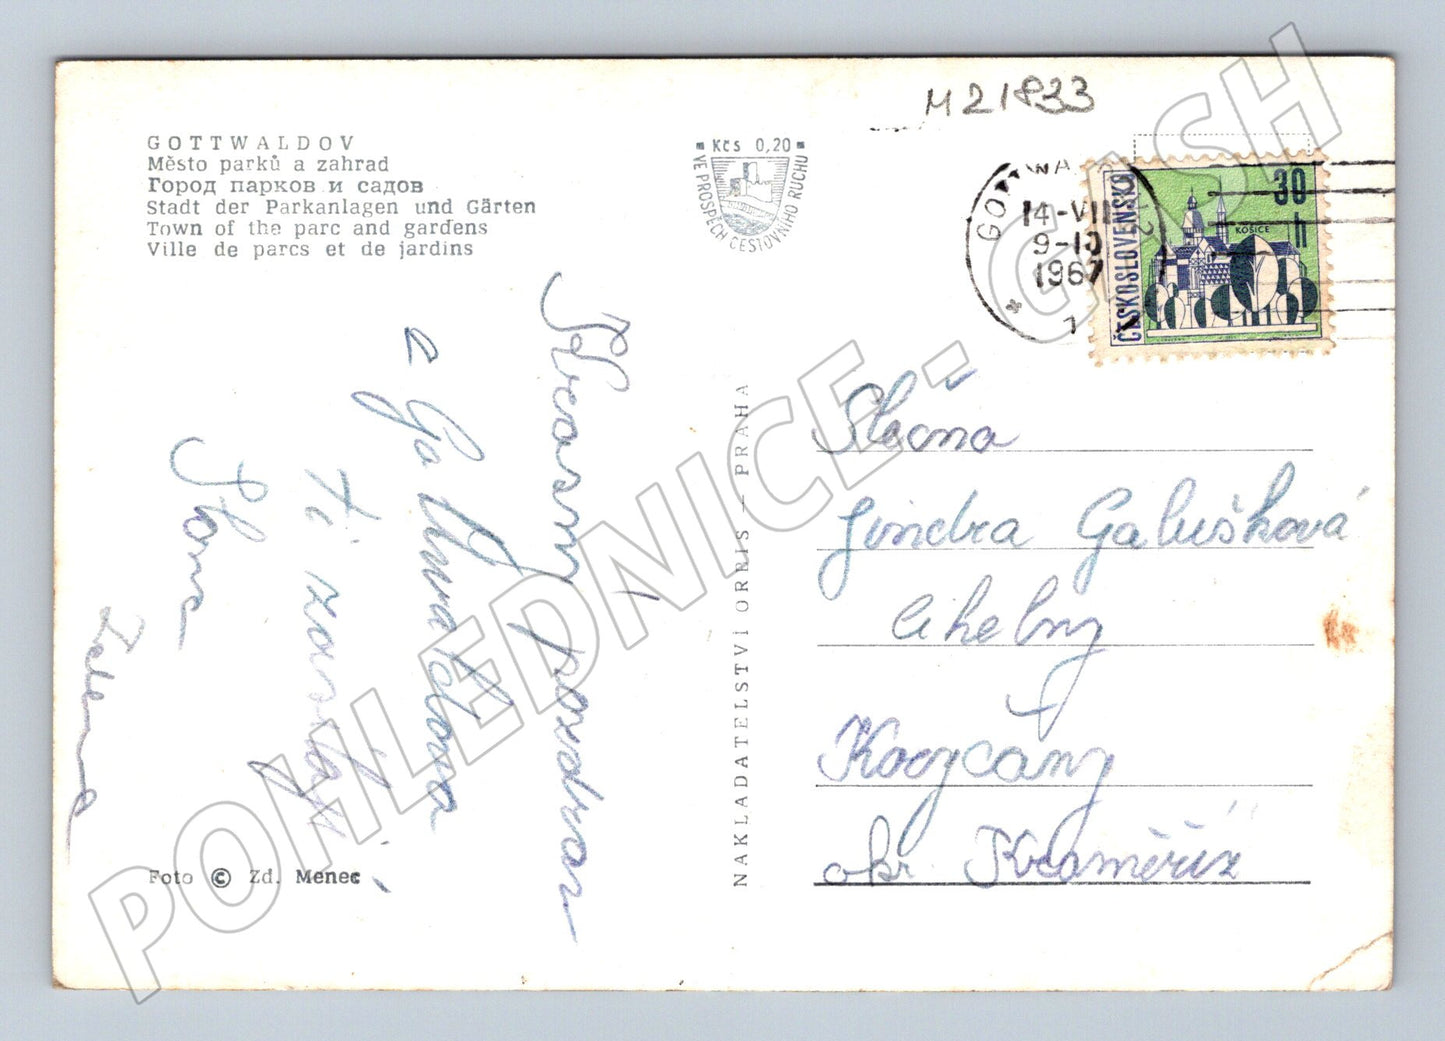 M21833
GOTTWALDOV
Město parků a zahrad
Город парков и садов
Stadt der Parkanlagen und Gärten
Town of the parc and gardens
Ville de parcs et de jardins
Kčs 0,20
VE PROSPĚCH CESTOVNÍHO RUCHU
14-VII
9-10
1967
1
ČESKOSLOVENSKO
30
h
KOŠICE
Krásný pozdrav
z Gottwaldova
Ti zasílají
Jana
Zdena
Slečna
Jindra Galušková
Cihelny
Koryčany
okr. Kroměříž
NAKLADATELSTVÍ ORBIS – PRAHA
Foto © Zd. Menec
POHLEDNICE - GASH